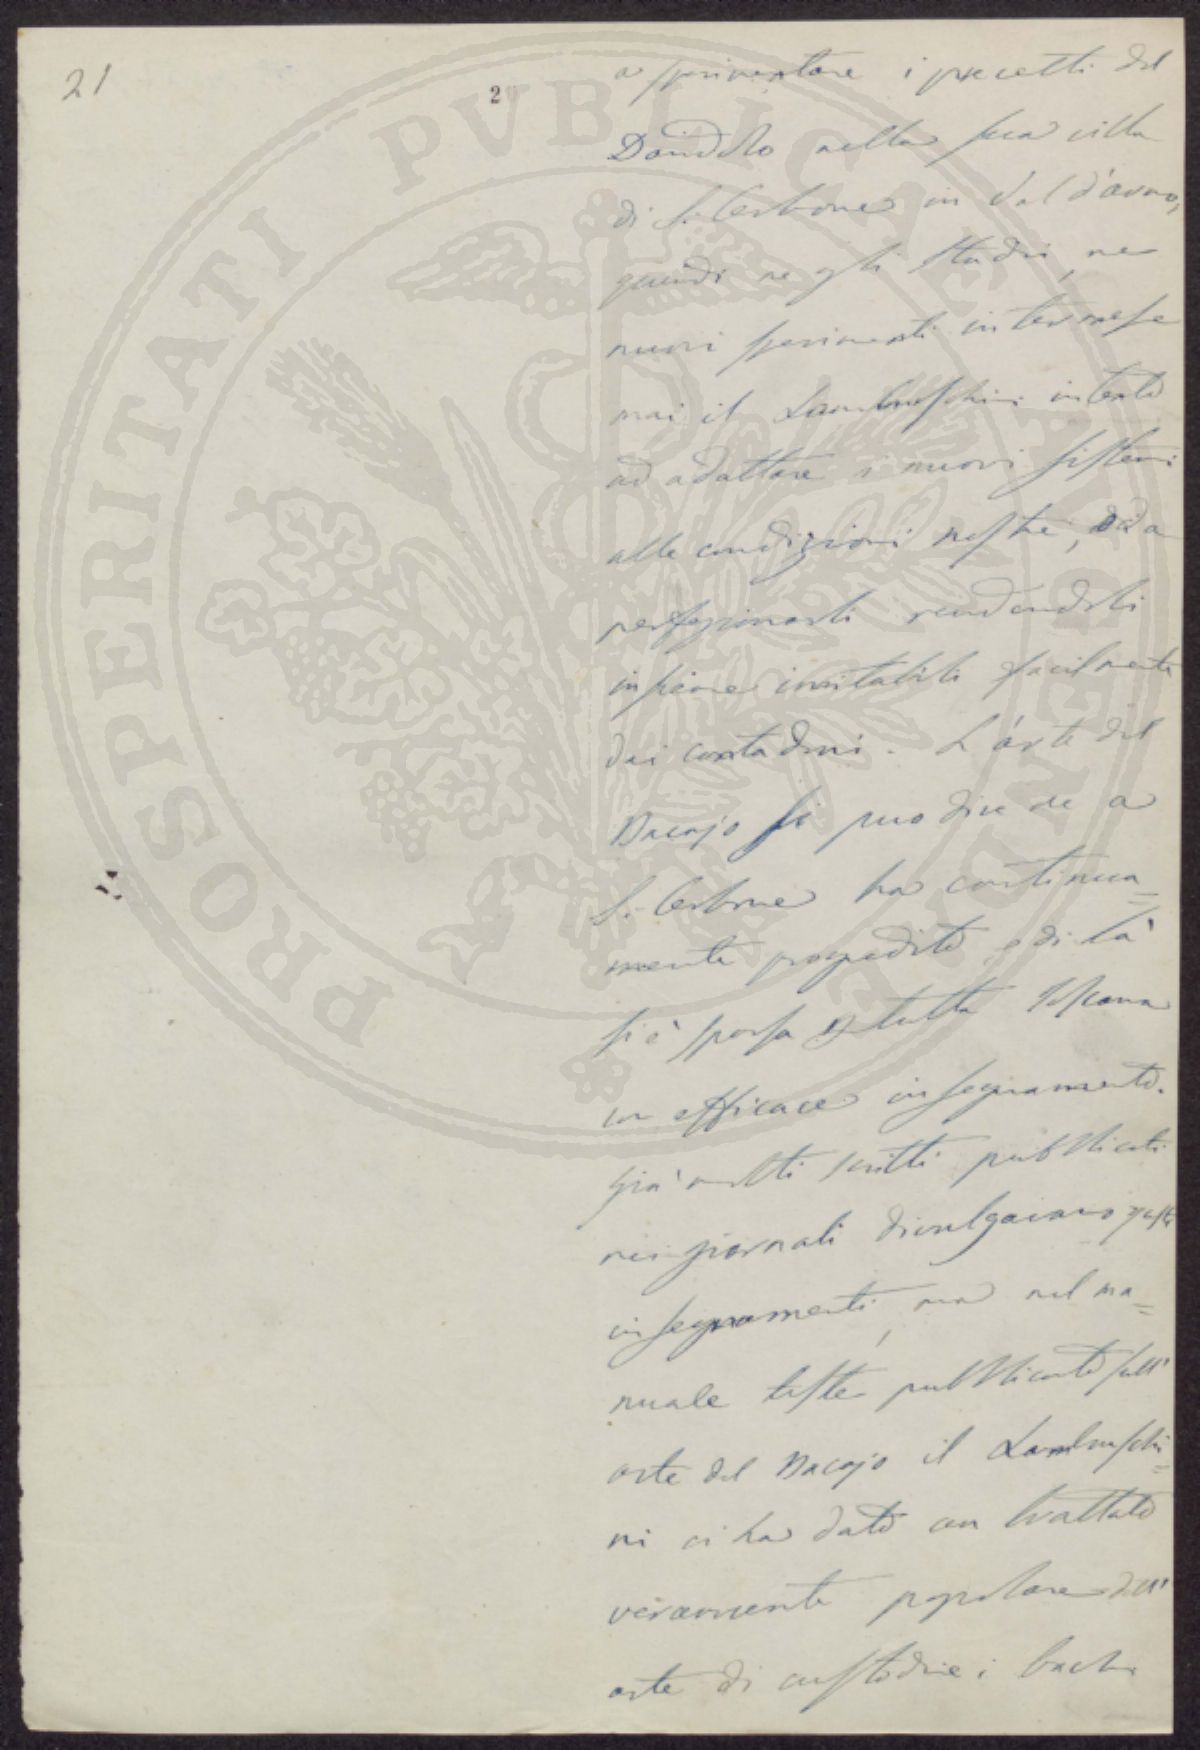 21
2
a sperimentare i precetti del
Dandolo nella sua villa
di S. Cerbone in Val d'arno,
quindi ne gli studi, ne
nuovi sperimenti intermesse
mai il Lambruschini intento
ad adattare i nuovi sistemi
alle condizioni nostre, ed a
perfezionarli rendendoli
insieme imitabili facilmente
dai contadini. L'arte del
Bacajo si puo dire che a
S. Cerbone ha continua=
mente progredito e di là
si è sparsa tutta Toscana
con efficace insegnamento.
Già molti scritti pubblicati
nei giornali divulgavano questi
insegnamenti, ma nel ma=
nuale testè pubblicato sull'
arte del Bacajo il Lambruschi=
ni ci ha dato un trattato
veramente popolare dell'
arte di custodire i bachi
PROSPERITATI PVBLICAE AVGENDAE